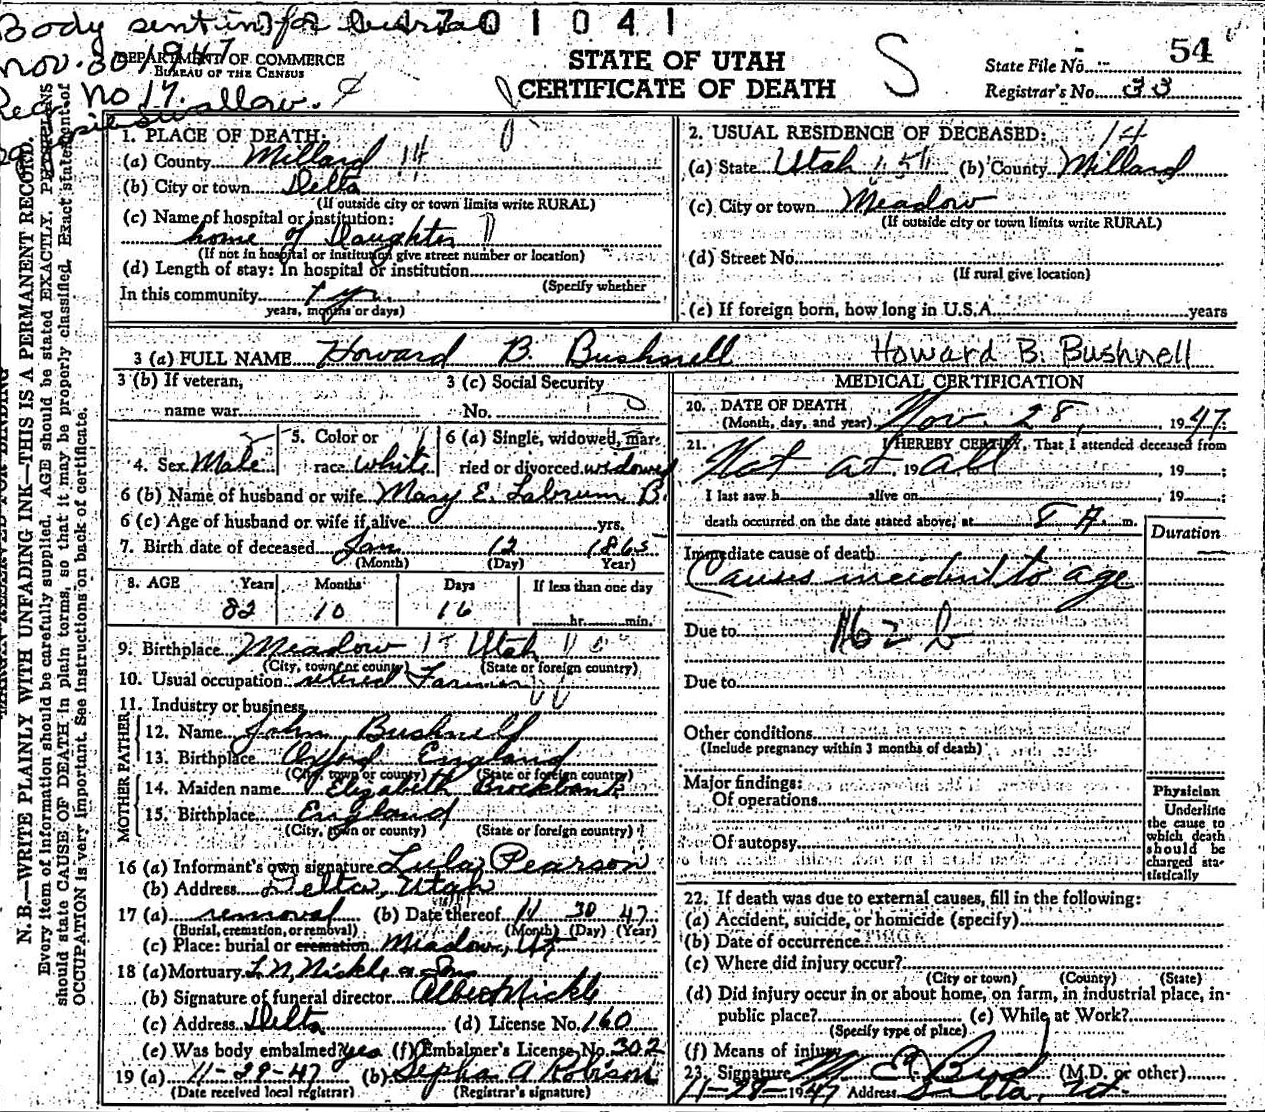 Body sent in for burial
4701041
Nov. 30 1947
DEPARTMENT OF COMMERCE
BUREAU OF THE CENSUS
Reg No 17.
STATE OF UTAH
CERTIFICATE OF DEATH
S
State File No. 54
Registrar's No. 33
N. B.—WRITE PLAINLY WITH UNFADING INK—THIS IS A PERMANENT RECORD.
Every item of information should be carefully supplied. AGE should be stated EXACTLY. PHYSICIANS
should state CAUSE OF DEATH in plain terms, so that it may be properly classified. Exact statement of
OCCUPATION is very important. See instructions on back of certificate.
1. PLACE OF DEATH:
(a) County Millard 14
(b) City or town Delta
(If outside city or town limits write RURAL)
(c) Name of hospital or institution:
home of Daughter
(If not in hospital or institution give street number or location)
(d) Length of stay: In hospital or institution
(Specify whether
In this community 1 yr.
years, months or days)
2. USUAL RESIDENCE OF DECEASED: 14
(a) State Utah (b) County Millard
(c) City or town Meadow
(If outside city or town limits write RURAL)
(d) Street No.
(If rural give location)
(e) If foreign born, how long in U.S.A. years
3 (a) FULL NAME Howard B. Bushnell Howard B. Bushnell
3 (b) If veteran,
name war
3 (c) Social Security
No.
4. Sex Male
5. Color or
race white
6 (a) Single, widowed, mar-
ried or divorced widowed
6 (b) Name of husband or wife Mary E. Labrum B.
6 (c) Age of husband or wife if alive yrs.
7. Birth date of deceased Jan 12 1865
(Month) (Day) Year)
8. AGE Years Months Days If less than one day
82 10 16 hr. min.
9. Birthplace Meadow Utah
(City, town or county) (State or foreign country)
10. Usual occupation retired Farmer
11. Industry or business
FATHER
12. Name John Bushnell
13. Birthplace Oxford England
(City, town or county) (State or foreign country)
MOTHER
14. Maiden name Elizabeth Brockbank
15. Birthplace England
(City, town or county) (State or foreign country)
16 (a) Informant's own signature Lula Pearson
(b) Address Delta, Utah
17 (a) removal (b) Date thereof 11 30 47
(Burial, cremation, or removal) (Month) (Day) (Year)
(c) Place: burial or cremation Meadow, Ut
18 (a) Mortuary L. N. Nickle & Sons
(b) Signature of funeral director Albert Nickle
(c) Address Delta (d) License No. 160
(e) Was body embalmed? yes (f) Embalmer's License No. 302
19 (a) 11-29-47 (b) Sepha A Robison
(Date received local registrar) (Registrar's signature)
MEDICAL CERTIFICATION
20. DATE OF DEATH
(Month, day, and year) Nov. 28, 1947
21. I HEREBY CERTIFY, That I attended deceased from
Not at all, 19 , 19 ;
I last saw h alive on , 19 ;
death occurred on the date stated above, at 8 A. m.
Duration
Immediate cause of death
Causes incident to age
Due to 162 b
Due to
Other conditions
(Include pregnancy within 3 months of death)
Major findings:
Of operations
Of autopsy
Physician
Underline
the cause to
which death
should be
charged sta-
tistically
22. If death was due to external causes, fill in the following:
(a) Accident, suicide, or homicide (specify)
(b) Date of occurrence
(c) Where did injury occur?
(City or town) (County) (State)
(d) Did injury occur in or about home, on farm, in industrial place, in-
public place? (e) While at Work?
(Specify type of place)
(f) Means of injury
23. Signature M E Bird (M.D. or other)
11-28-1947 Address Delta, Ut.